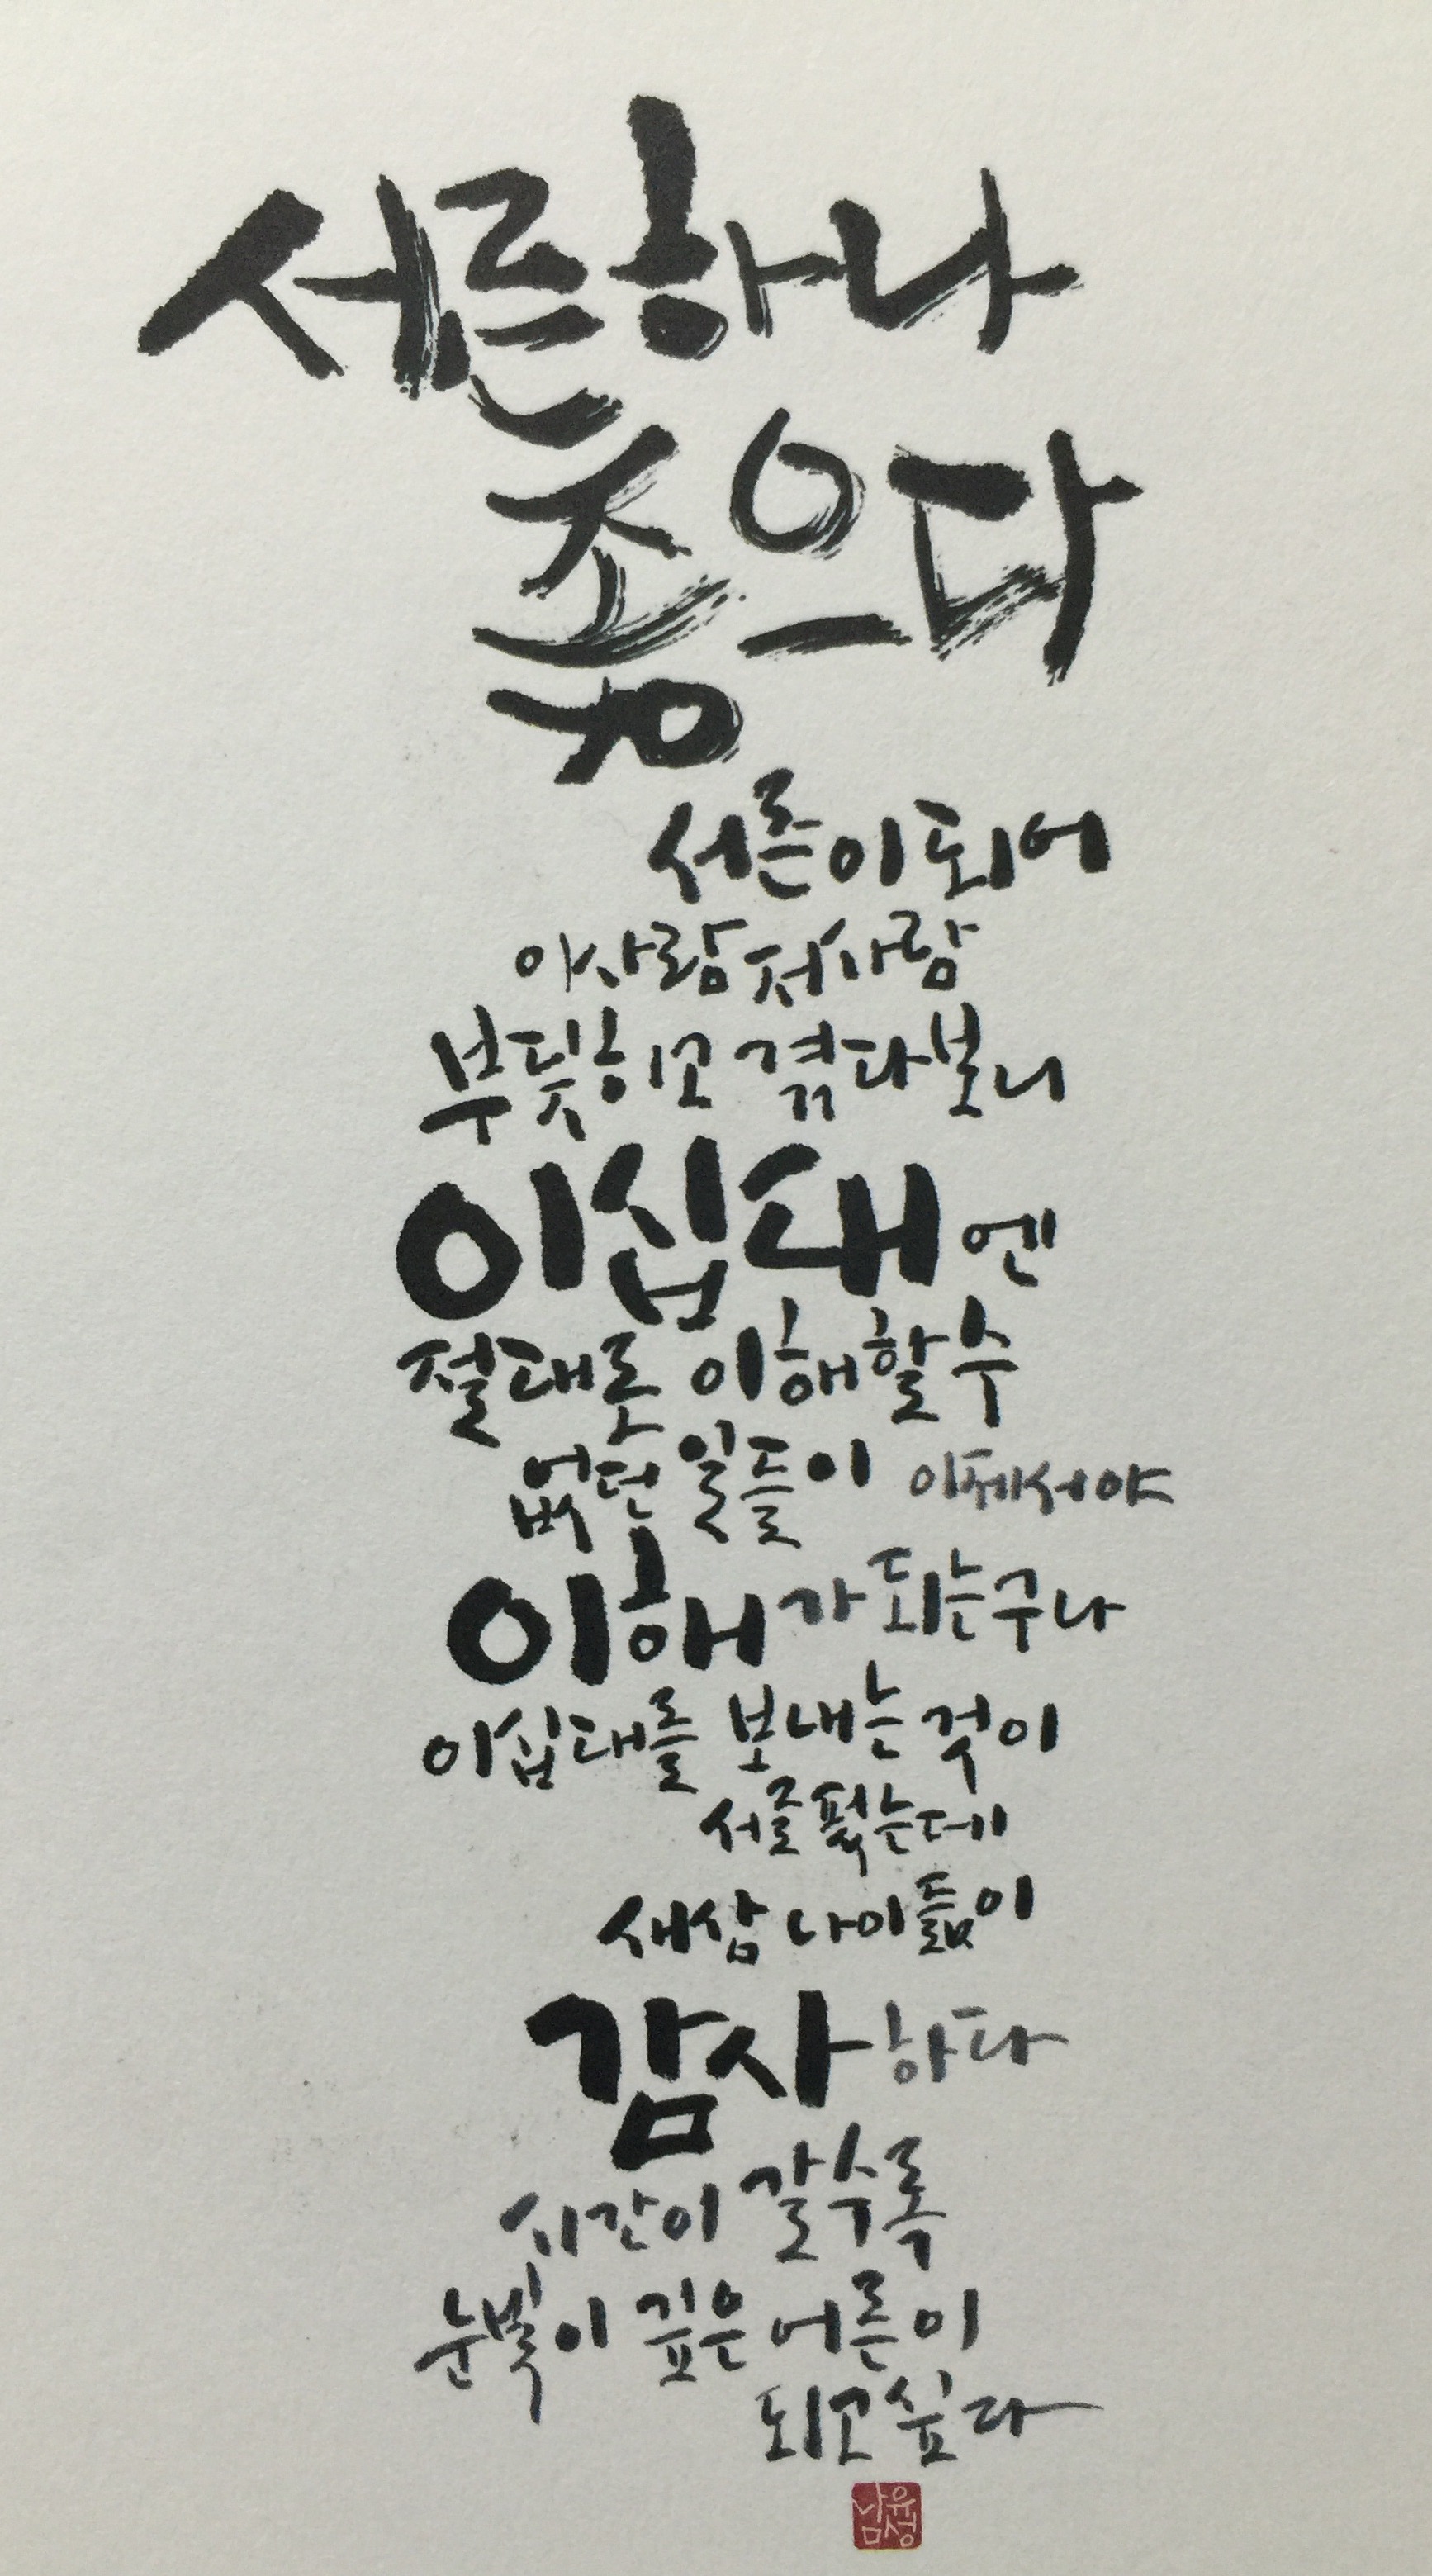 서른하나
좋으다
서른이 되어
이사람 저사람
부딪히고 겪다보니
이십대엔
절대로 이해할 수
없던 일들이 이제서야
이해가 되는구나
이십대를 보내는 것이
서글펐는데
새삼 나이듦이
감사하다
시간이 갈수록
눈빛이 깊은 어른이
되고싶다